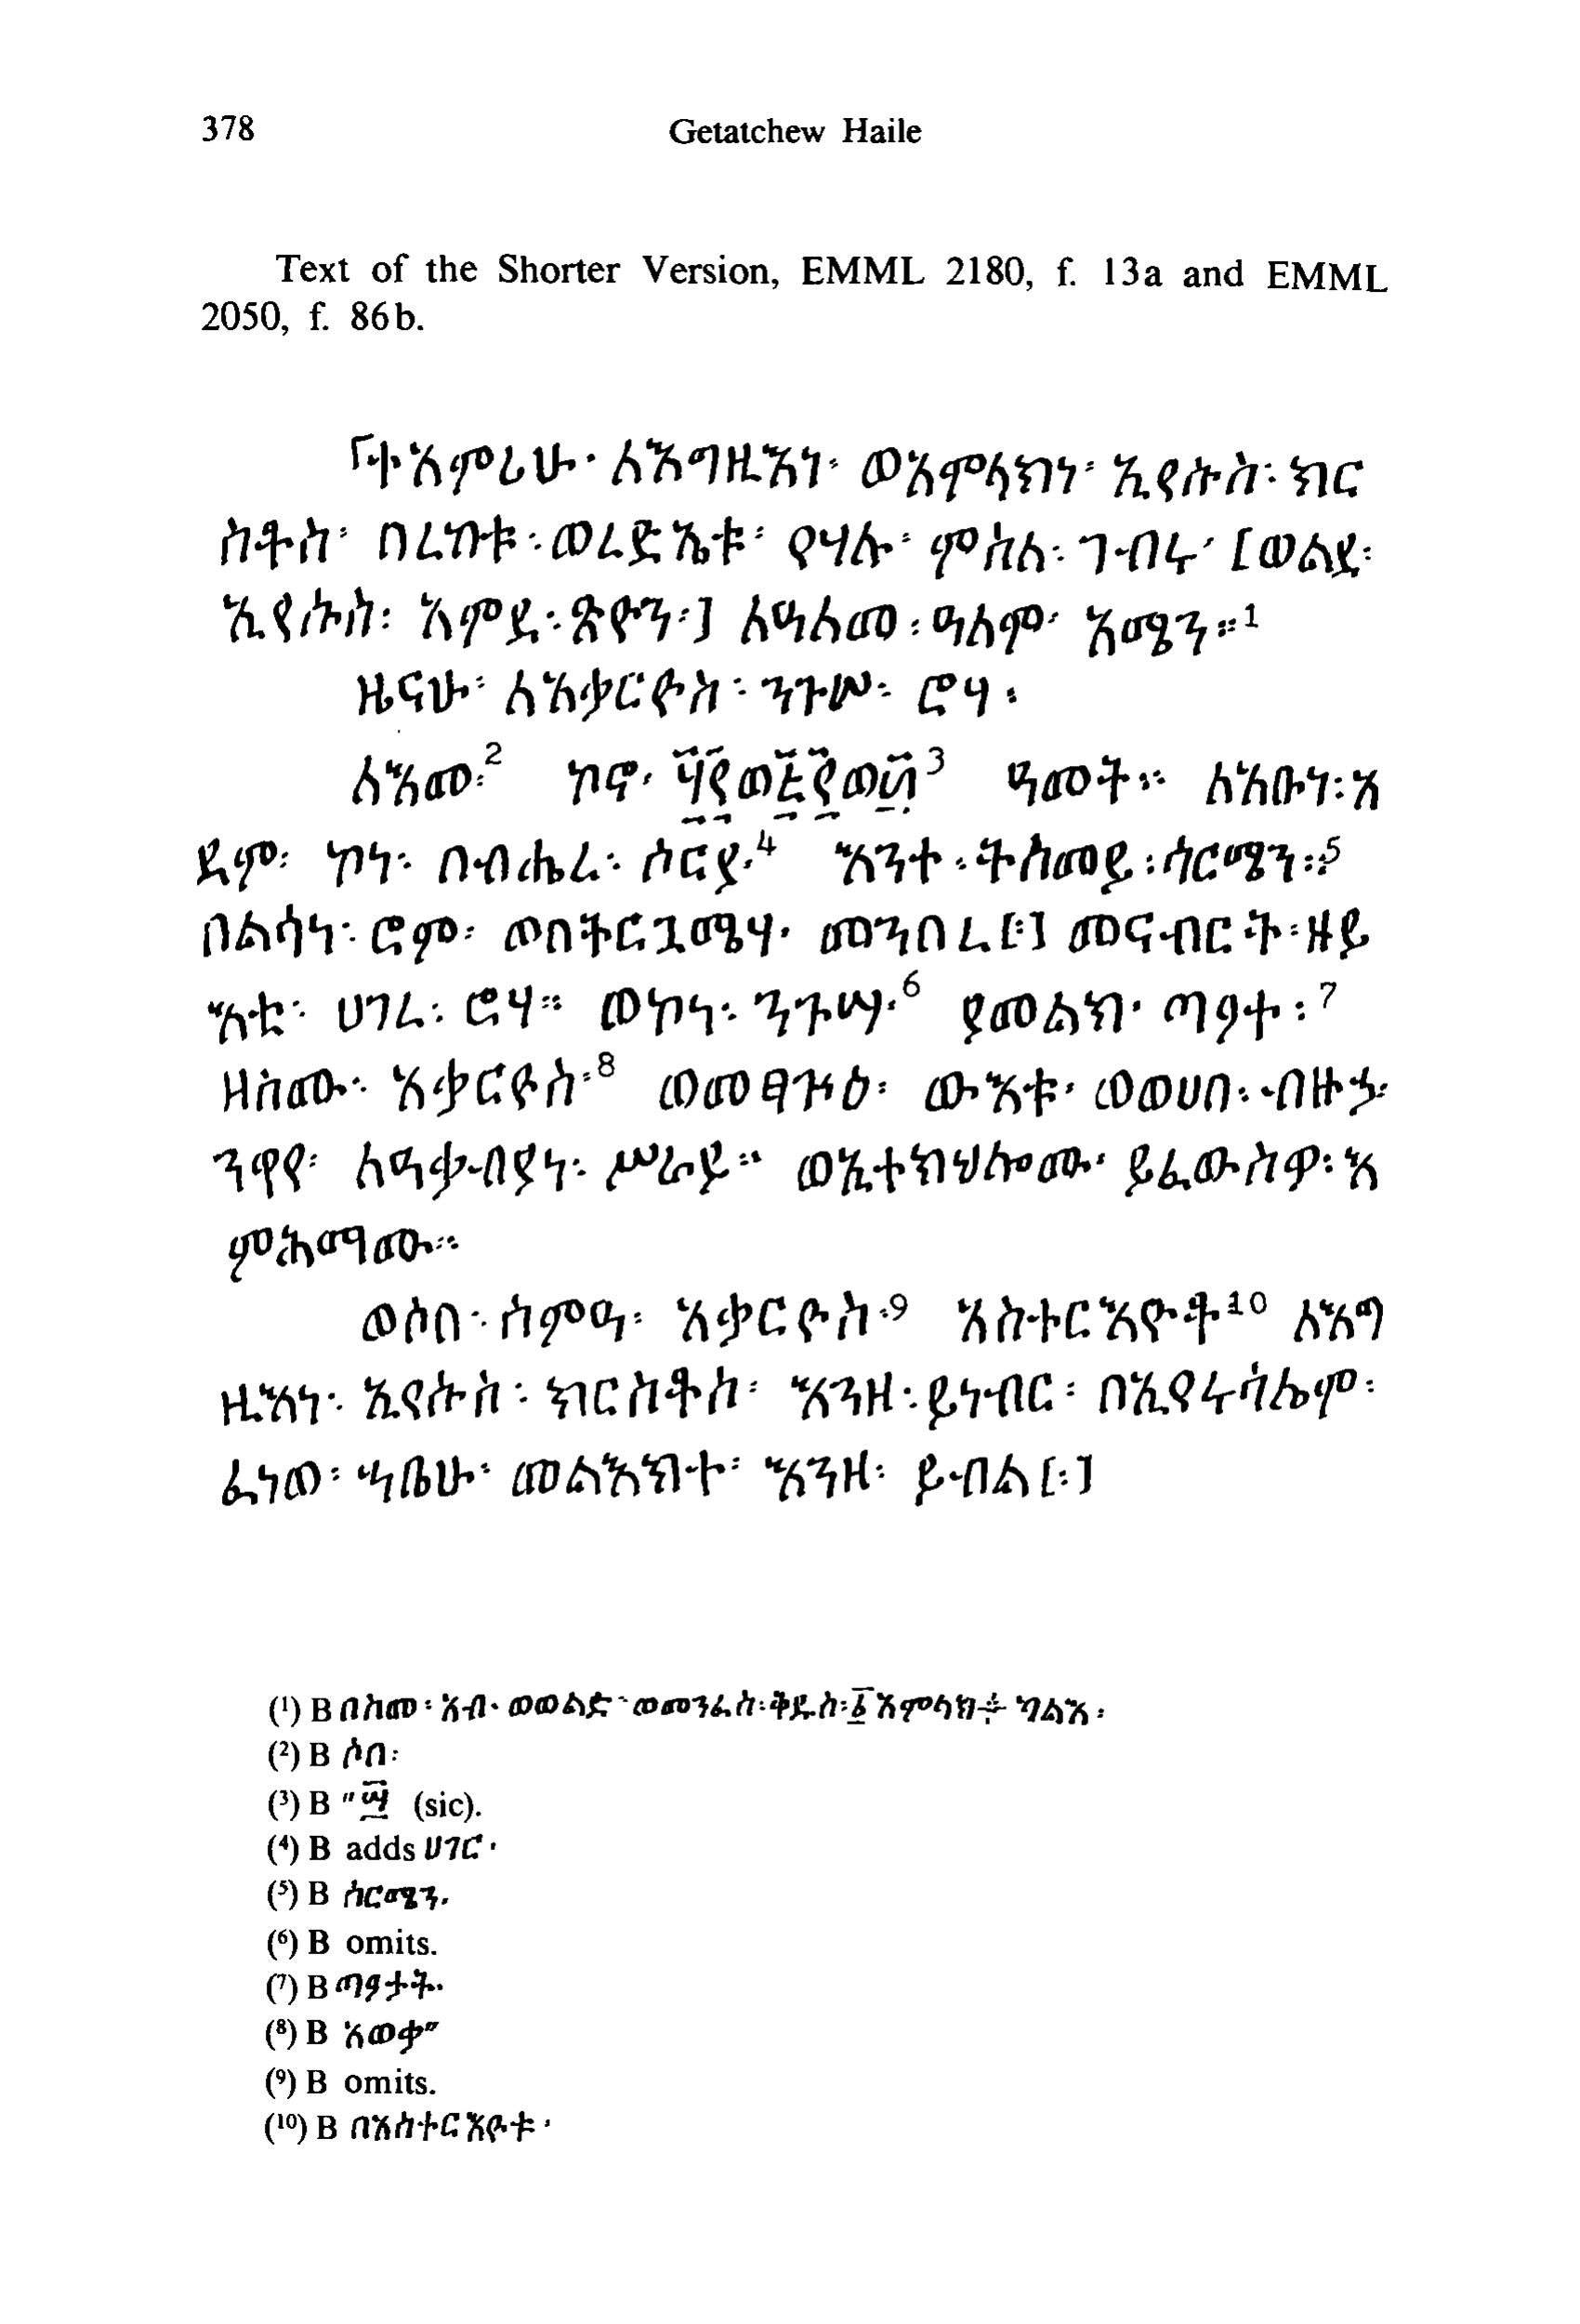 378 Getatchew Haile
Text of the Shorter Version, EMML 2180, f. 13a and EMML
2050, f. 86b.
⌈ተአምሪሁ፡ ለእግዚእነ፡ ወአምላክነ፡ ኢየሱስ፡ ክር
ስቶስ፡ በረከቱ፡ ወረድኤቱ፡ የሃሉ፡ ምስለ፡ ገብሩ፡ [ወልደ፡
ኢየሱስ፡ አምደ፡ ጽዮን፡] ለዓለመ፡ ዓለም፡ አሜን።1
ዜናሁ፡ ለአቃርዮስ፡ ንጉሠ፡ ሮሃ፡
ለአመ፡2 ኮኖ፡ ፶፻ወ፭፻ወ፴3 ዓመት። ለአቡነ፡ አ
ደም፡ ኮነ፡ በብሔረ፡ ሶርያ፡4 እንተ፡ ትስመይ፡ ሳርሜን፡5
በልሳነ፡ ሮም፡ ወበትርጓሜሃ፡ መንበረ[፡] መናብርት፡ ዘይ
እቲ፡ ሀገረ፡ ሮሃ። ወኮነ፡ ንጉሣ፡6 ያመልክ፡ ጣዖተ፡7
ዘስሙ፡ አቃርዮስ፡8 ወመፃጕዕ፡ ውእቱ፡ ወወሀበ፡ ብዙኃ፡
ንዋየ፡ ለዓቃብያነ፡ ሥራይ። ወኢተክህሎሙ፡ ይፈውስዎ፡ እ
ምሕማሙ።
ወሶበ፡ ሰምዓ፡ አቃርዮስ፡9 አስተርእዮቶ10 ለእግ
ዚእነ፡ ኢየሱስ፡ ክርስቶስ፡ እንዘ፡ ይነብር፡ በኢየሩሳሌም፡
ፈነወ፡ ኀቤሁ፡ መልእክተ፡ እንዘ፡ ይብል[፡]
(1) B በስመ፡ አብ፡ ወወልድ፡ ወመንፈስ፡ ቅዱስ፡ ፩ አምላክ ፨ ካልእ፡
(2) B ሶበ፡
(3) B "፶ (sic).
(4) B adds ሀገር፡
(5) B ሰርሜን፡
(6) B omits.
(7) B ጣዖታት፡
(8) B አወቃ"
(9) B omits.
(10) B በአስተርእዮቱ፡